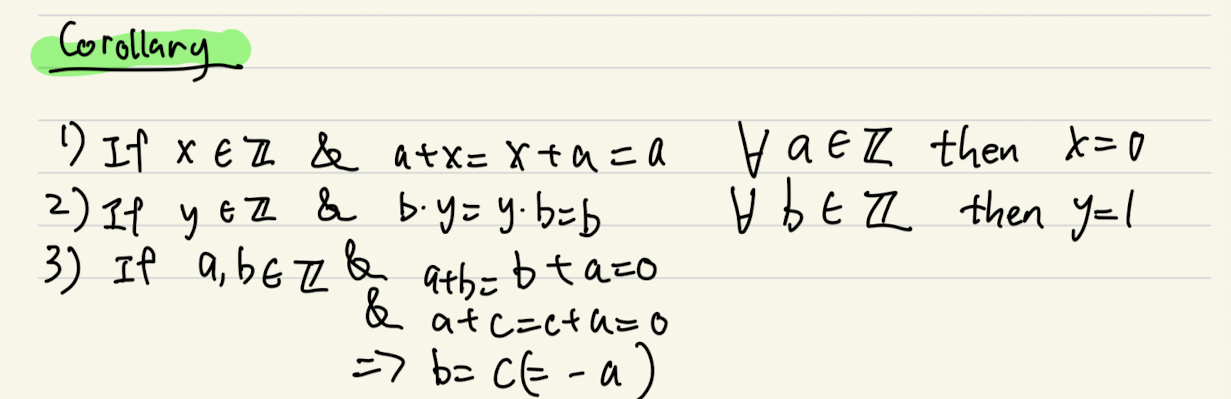 Corollary
1) If x ∈ ℤ & a+x = x+a = a ∀ a ∈ ℤ then x=0
2) If y ∈ ℤ & b·y = y·b = b ∀ b ∈ ℤ then y=1
3) If a, b ∈ ℤ & a+b = b+a = 0
& a+c = c+a = 0
=> b = c (= -a)